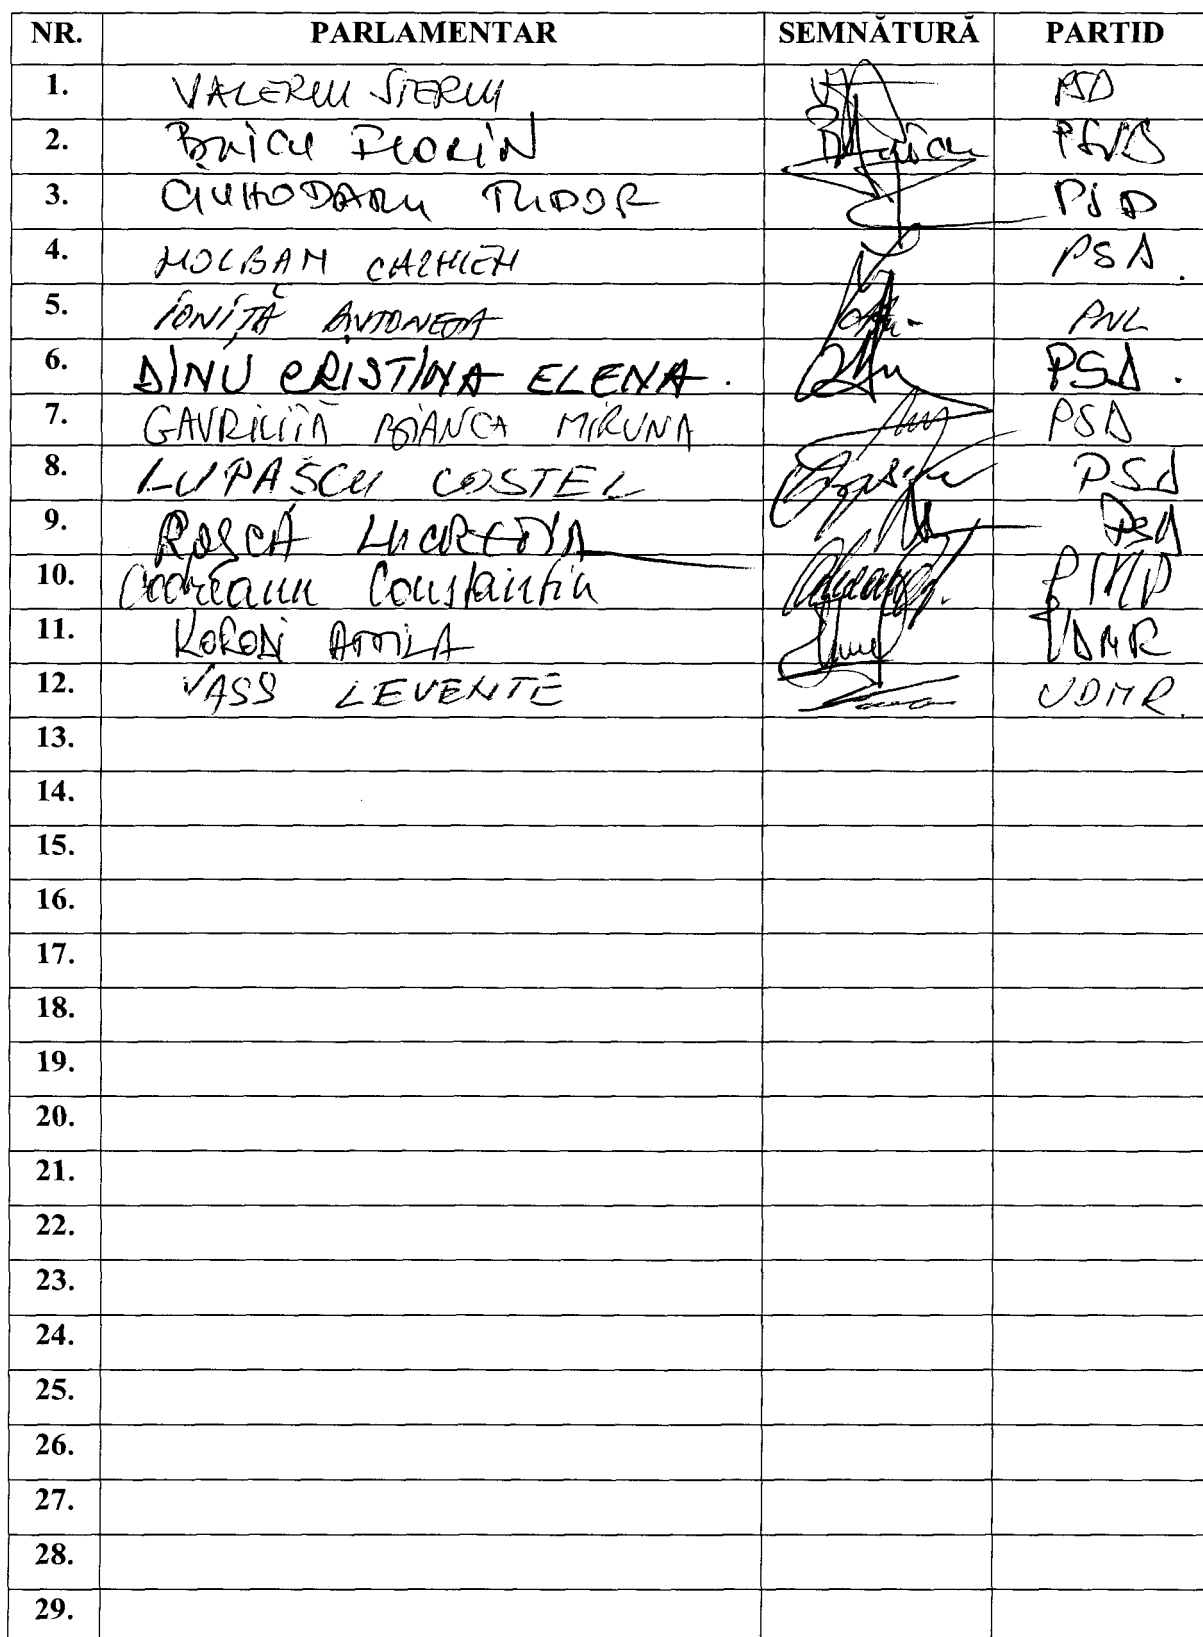 NR. PARLAMENTAR SEMNĂTURĂ PARTID
1. VALERIU STERIU PSD
2. BUICU FLORIN PSD
3. CIUHODARU TUDOR PSD
4. HOLBAN CARMEN PSD.
5. IONIȚĂ ANTONETA PNL
6. DINU CRISTINA ELENA. PSD.
7. GAVRILIȚĂ BIANCA MIRUNA PSD
8. LUPAȘCU COSTEL PSD
9. ROȘCA LUCREȚIA PSD
10. Codreanu Constantin PMP
11. KORODI ATTILA UDMR
12. VASS LEVENTE UDMR.
13.
14.
15.
16.
17.
18.
19.
20.
21.
22.
23.
24.
25.
26.
27.
28.
29.